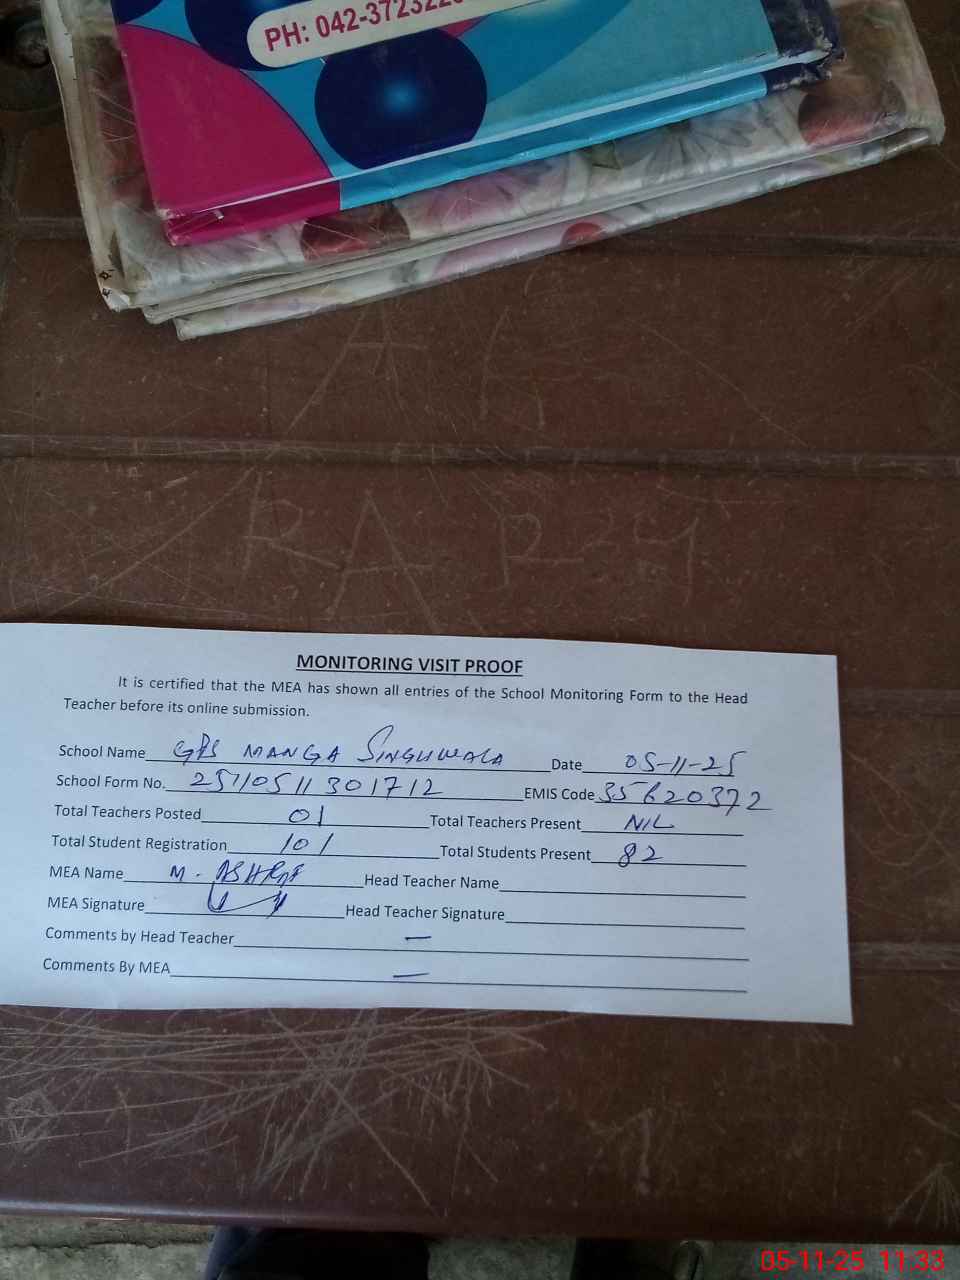 PH: 042-372322
MONITORING VISIT PROOF
It is certified that the MEA has shown all entries of the School Monitoring Form to the Head
Teacher before its online submission.
School Name GPS MANGA SINGHWALA Date 05-11-25
School Form No. 2511051301712 EMIS Code 35620372
Total Teachers Posted 01 Total Teachers Present NIL
Total Student Registration 101 Total Students Present 82
MEA Name M. ASHRAF Head Teacher Name
MEA Signature Head Teacher Signature
Comments by Head Teacher —
Comments By MEA —
05-11-25 11:33